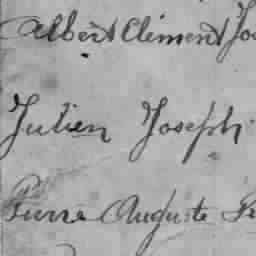 Albert Clément Jo
Julien Joseph
Pierre Auguste